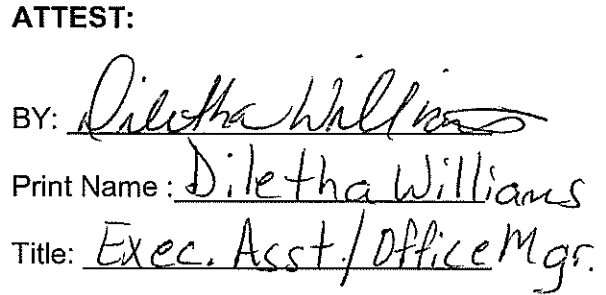 ATTEST:
BY: Diletha Williams
Print Name : Diletha Williams
Title: Exec. Asst./Office Mgr.